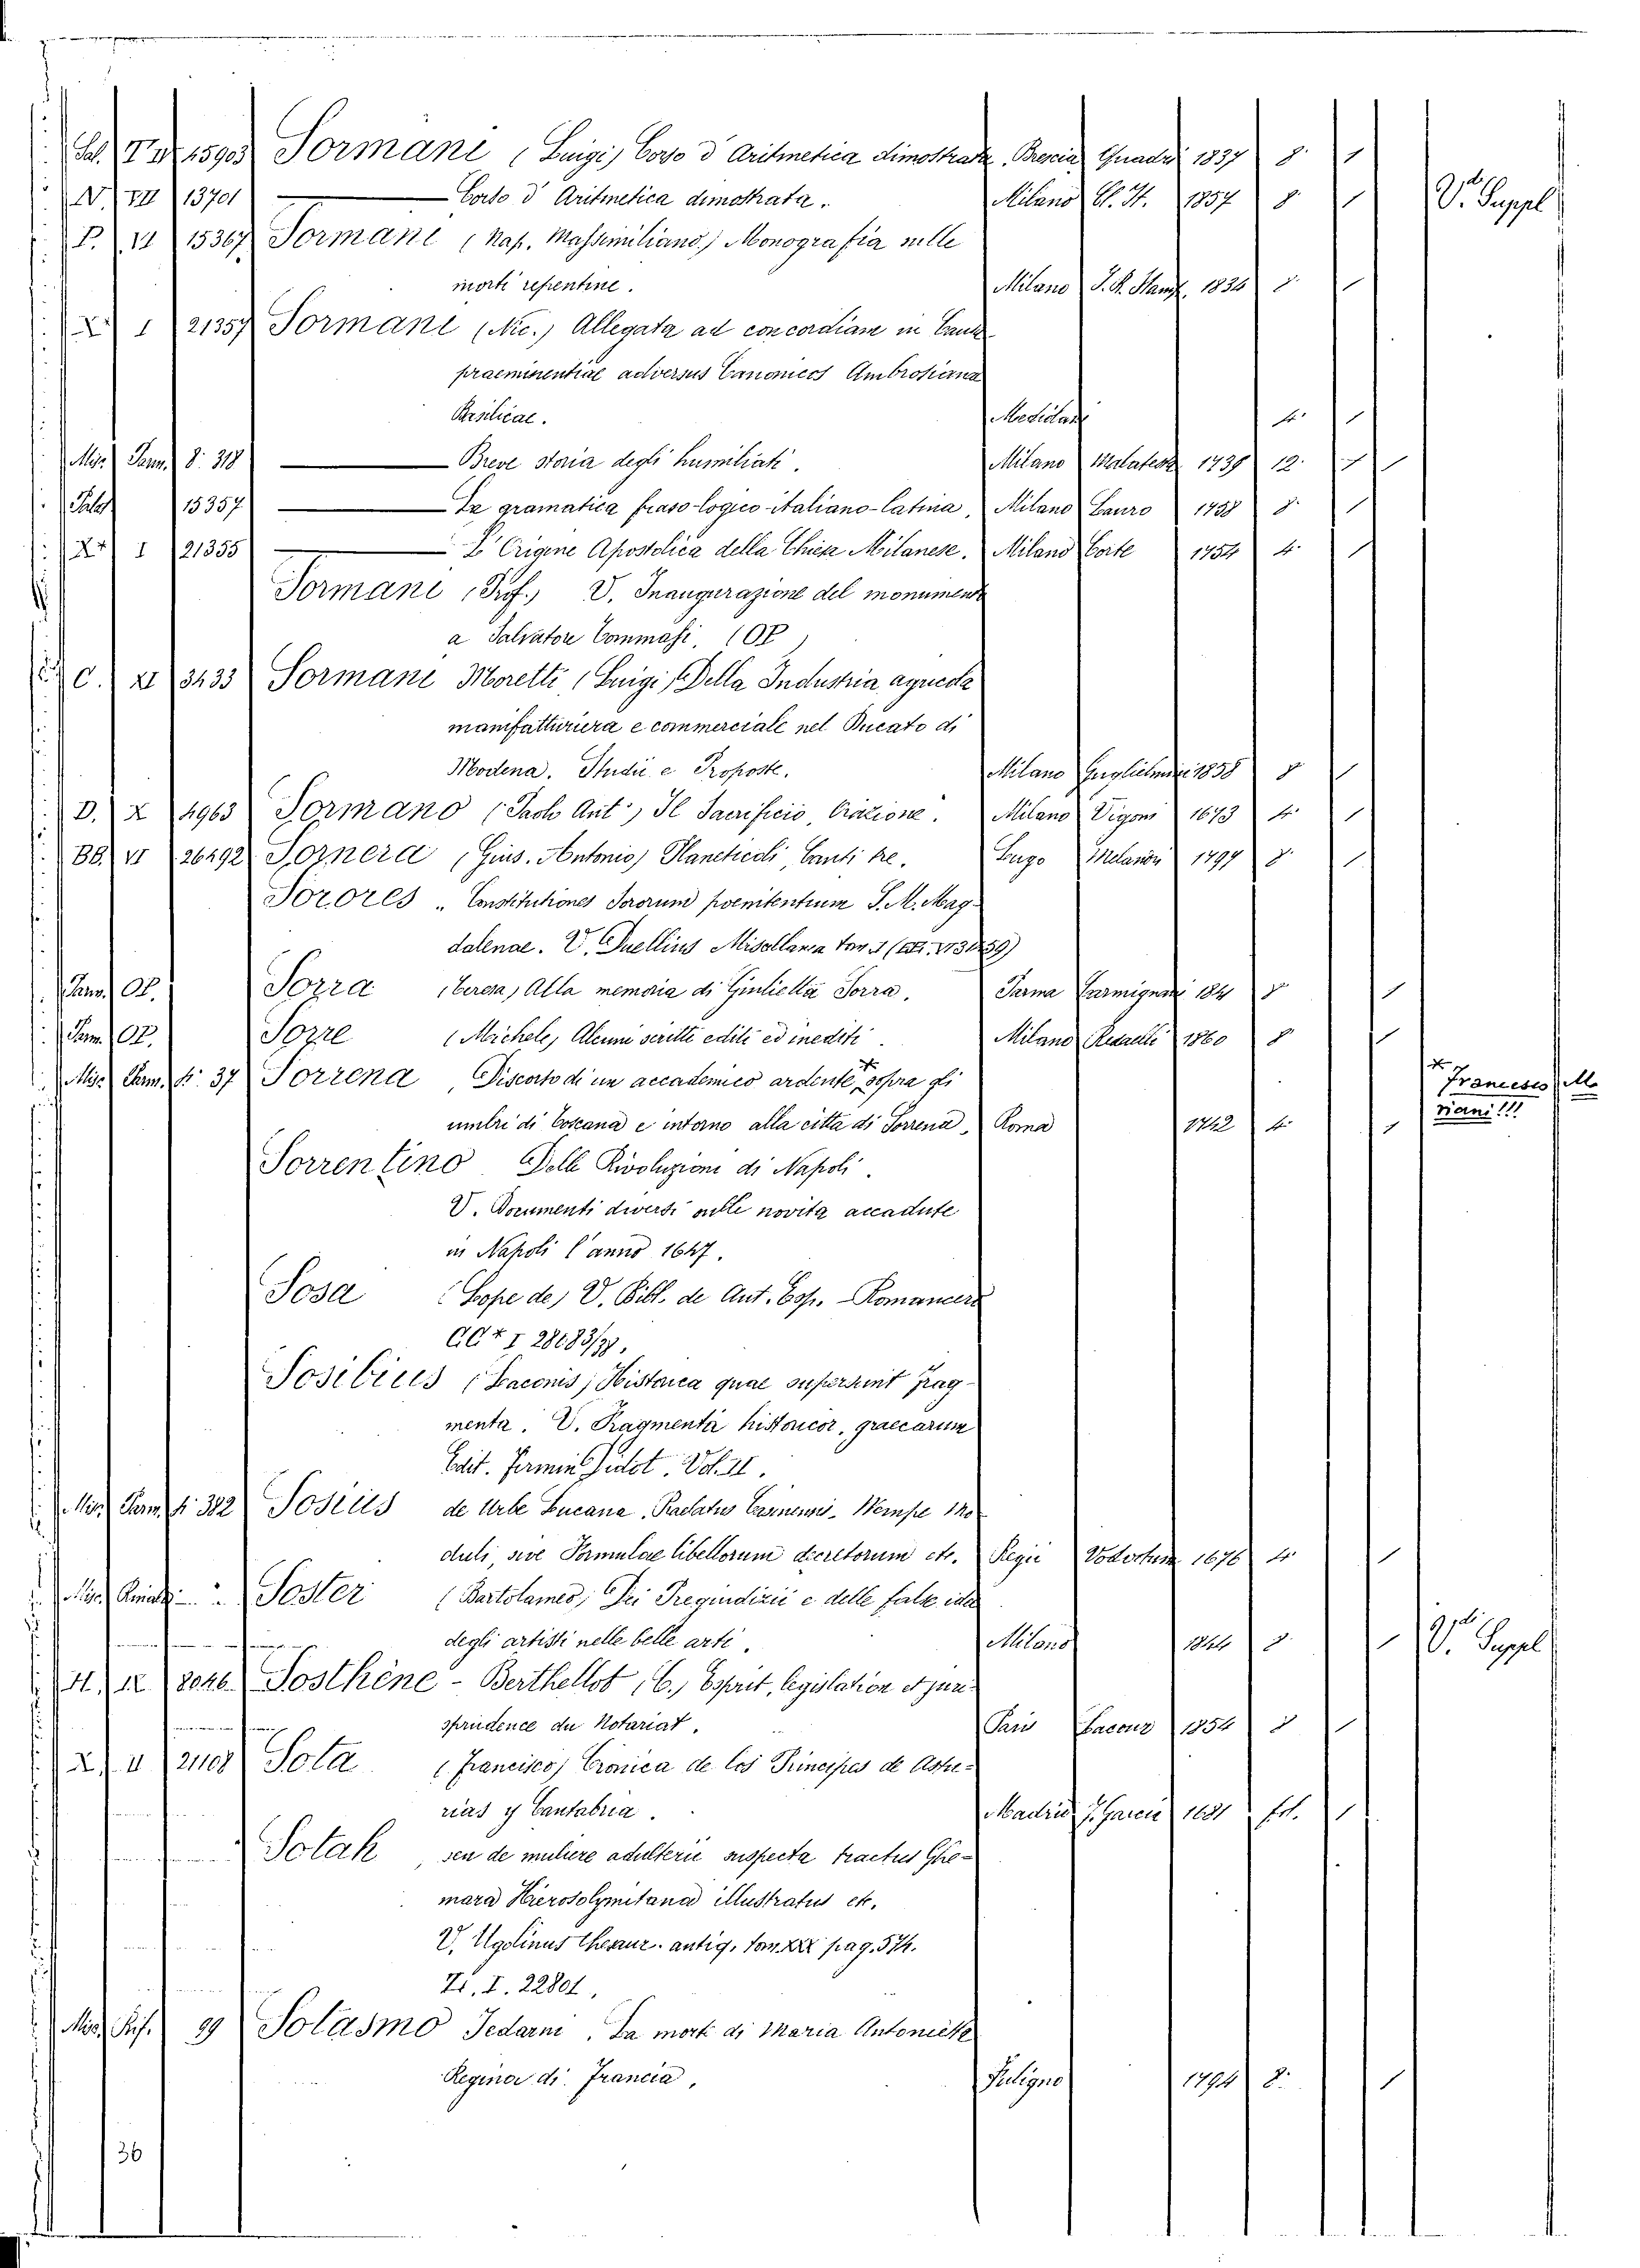 Sal. 15903 Sormani (Luigi) Corso d'Aritmetica dimostrata. Brescia Quadri 1837 8. 1
N. VII 13701 Corso d'Aritmetica dimostrata. Milano 1857 8 1 V. Suppl
P. VI 15367 Sormani (Nap. Massimiliano) Monografia sulle
morti repentine. Milano I. R. Stamp. 1834 8. 1
X I 21357 Sormani (Nic.) Allegata ad concordiam in Causa
praeminentiae adversus Canonicos Ambrosianae
Basilicae. Mediolani 4. 1
Misc. Parm. 8. 318 Breve storia degli humiliati. Milano Malatesta 1739 12. 1
Palat 15357 La gramatica fraso-logico-italiano-latina, Milano Cairo 1758 8. 1
X I 21355 L'Origine Apostolica della Chiesa Milanese. Milano Corte 1754 4. 1
Sormani (Prof.) V. Inaugurazione del monumento
a Salvatore Tommasi. (OP)
C. XI 3433 Sormani Moretti (Luigi) Della Industria agricola
manifatturiera e commerciale nel Ducato di
Modena. Studii e Proposte. Milano Guglielmini 1858 8 1
D. X 4963 Sormano (Jach. Ant.) Il Sacrificio, Orazione. Milano Vigoni 1673 4. 1
BB. VI 26492 Sornera (Gius. Antonio) Plancticoli, Canti tre. Lugo Melandri 1797 8. 1
Sorores "Constitutiones Sororum poenitentium S. M. Mag-
dalenae. V. Duellius Miscellanea tom. I
Parm. OP. Sorra (Teresa) Alla memoria di Giulietta Sorra. Parma Carmignani 184 8 1
Parm. OP. Sorre (Michele) Alcuni scritti editi ed inediti. Milano Redaelli 1860 8 1
Misc. Parm. 4. 37 Sorrena, Discorso di un accademico ardente * sopra gli
umbri di Toscana e intorno alla città di Sorrena, Roma 1742 4. 1
* Francesco Ma
riani!!!
Sorrentino Delle Rivoluzioni di Napoli.
V. Documenti diversi sulle novità accadute
in Napoli l'anno 1647.
Sosa (Lope de) V. Bibl. de Aut. Esp. - Romancero
CC* I 28183/39.
Sosibius (Laconis) Historica quae supersunt frag-
menta. V. Fragmenta historicor. graecarum
Edit. Firmin Didot. Vol. II.
Misc. Parm. 4. 382 Sosius de Urbe Lucana. Radatus Mo
duli, sive Formulae libellorum decretorum etc. Regii Vedrotum 1676 4. 1
Misc. Soster (Bartolameo) Dei Pregiudizii e delle false idee
degli artisti nelle belle arti. Milano 1844 8. 1 V. Suppl
H. IX 8046 Sosthène-Berthellot (C.) Esprit, législation et juri-
sprudence du Notariat. Paris Lacour 1854 8 1
X. II 21108 Sota (Francisco) Cronica de los Principes de Astu-
rias y Cantabria. Madrid J. Garcia 1681 fol. 1
Sotah, seu de muliere adulterii suspecta tractus Ghe-
mara Hierosolymitana illustratus etc.
V. Ugolinus Thesaur. antiq. tom. XXX pag. 574.
Z. I. 22801.
Misc. 99 Sotasmo Jedarni. La morte di Maria Antonietta
Regina di Francia. Fuligno 1794 8. 1
36